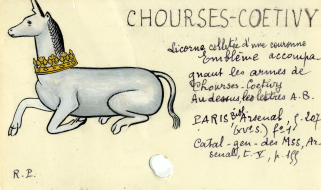 CHOURSES-COETIVY
Licorne colletée d'une couronne
Emblème accompa-
gnant les armes de
Chourses-Coetivy
Au dessus, les lettres A.B.
PARIS Bibl. Arsenal,
(XVe s.) fº 1
Catal-gen-des Mss, Ar-
senal, t. V, p.
R.P.